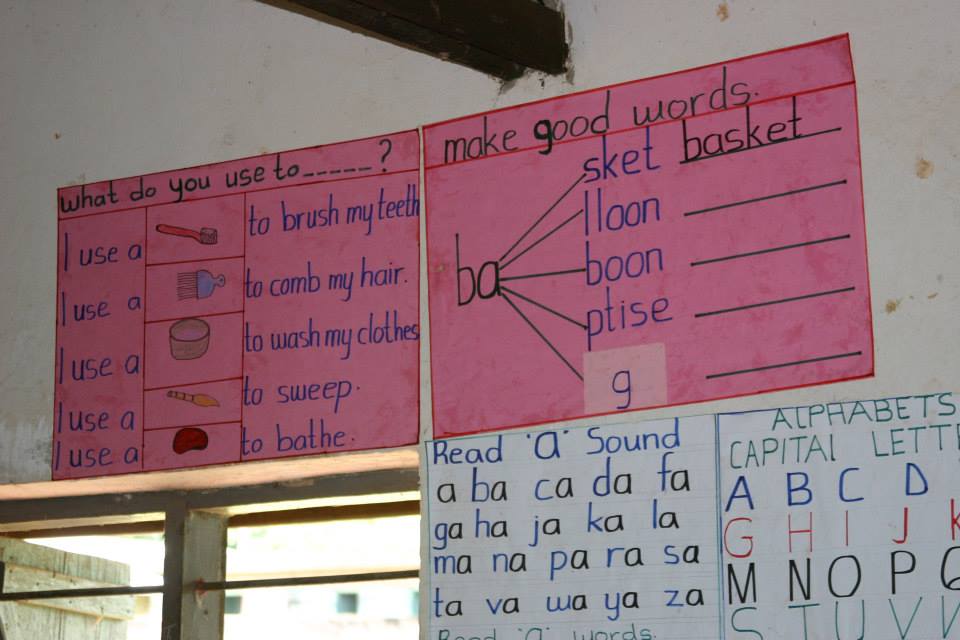 what do you use to_____?
I use a to brush my teeth
I use a to comb my hair.
I use a to wash my clothes
I use a to sweep.
I use a to bathe.
make good words.
ba
sket basket
lloon
boon
ptise
g
Read 'a' Sound
a ba ca da fa
ga ha ja ka la
ma na pa ra sa
ta va wa ya za
Read 'a' words.
ALPHABETS
CAPITAL LETTE
A B C D
G H I J K
M N O P Q
S T U V